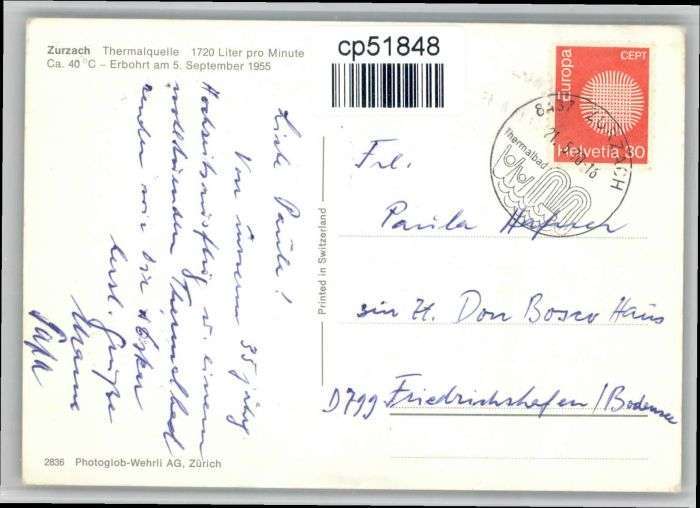 Zurzach Thermalquelle 1720 Liter pro Minute
Ca. 40 °C – Erbohrt am 5. September 1955
cp51848
Europa CEPT
Helvetia 30
8437 ZURZACH
Thermalbad
Liebe Paula!
Von unserm 35 jährig
Hochzeitsausflug u. einem
wohltuenden Thermalbad
senden wir Dir
herzl. Grüße
Mama
Papa
Printed in Switzerland
Frl.
Paula Hafner
zur Zt. Don Bosco Haus
D799 Friedrichshafen/Bodensee
2836 Photoglob-Wehrli AG, Zürich